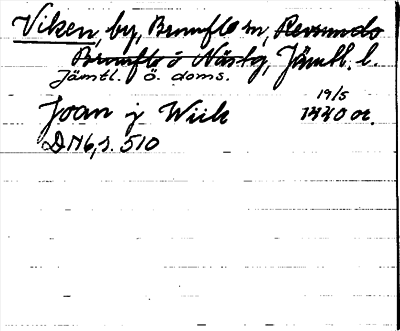 Viken, by, Brunflo sn, Revsunds
Brunflo o Näs tg, Jämtl. l.
Jämtl. ö. doms.
19/5
Joan j Wiik 1440 or.
DN 16, s. 510